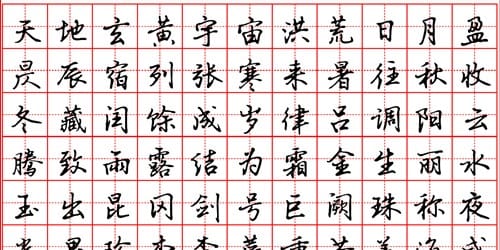 天地玄黄宇宙洪荒日月盈
昃辰宿列张寒来暑往秋收
冬藏闰馀成岁律吕调阳云
腾致雨露结为霜金生丽水
玉出昆冈剑号巨阙珠称夜